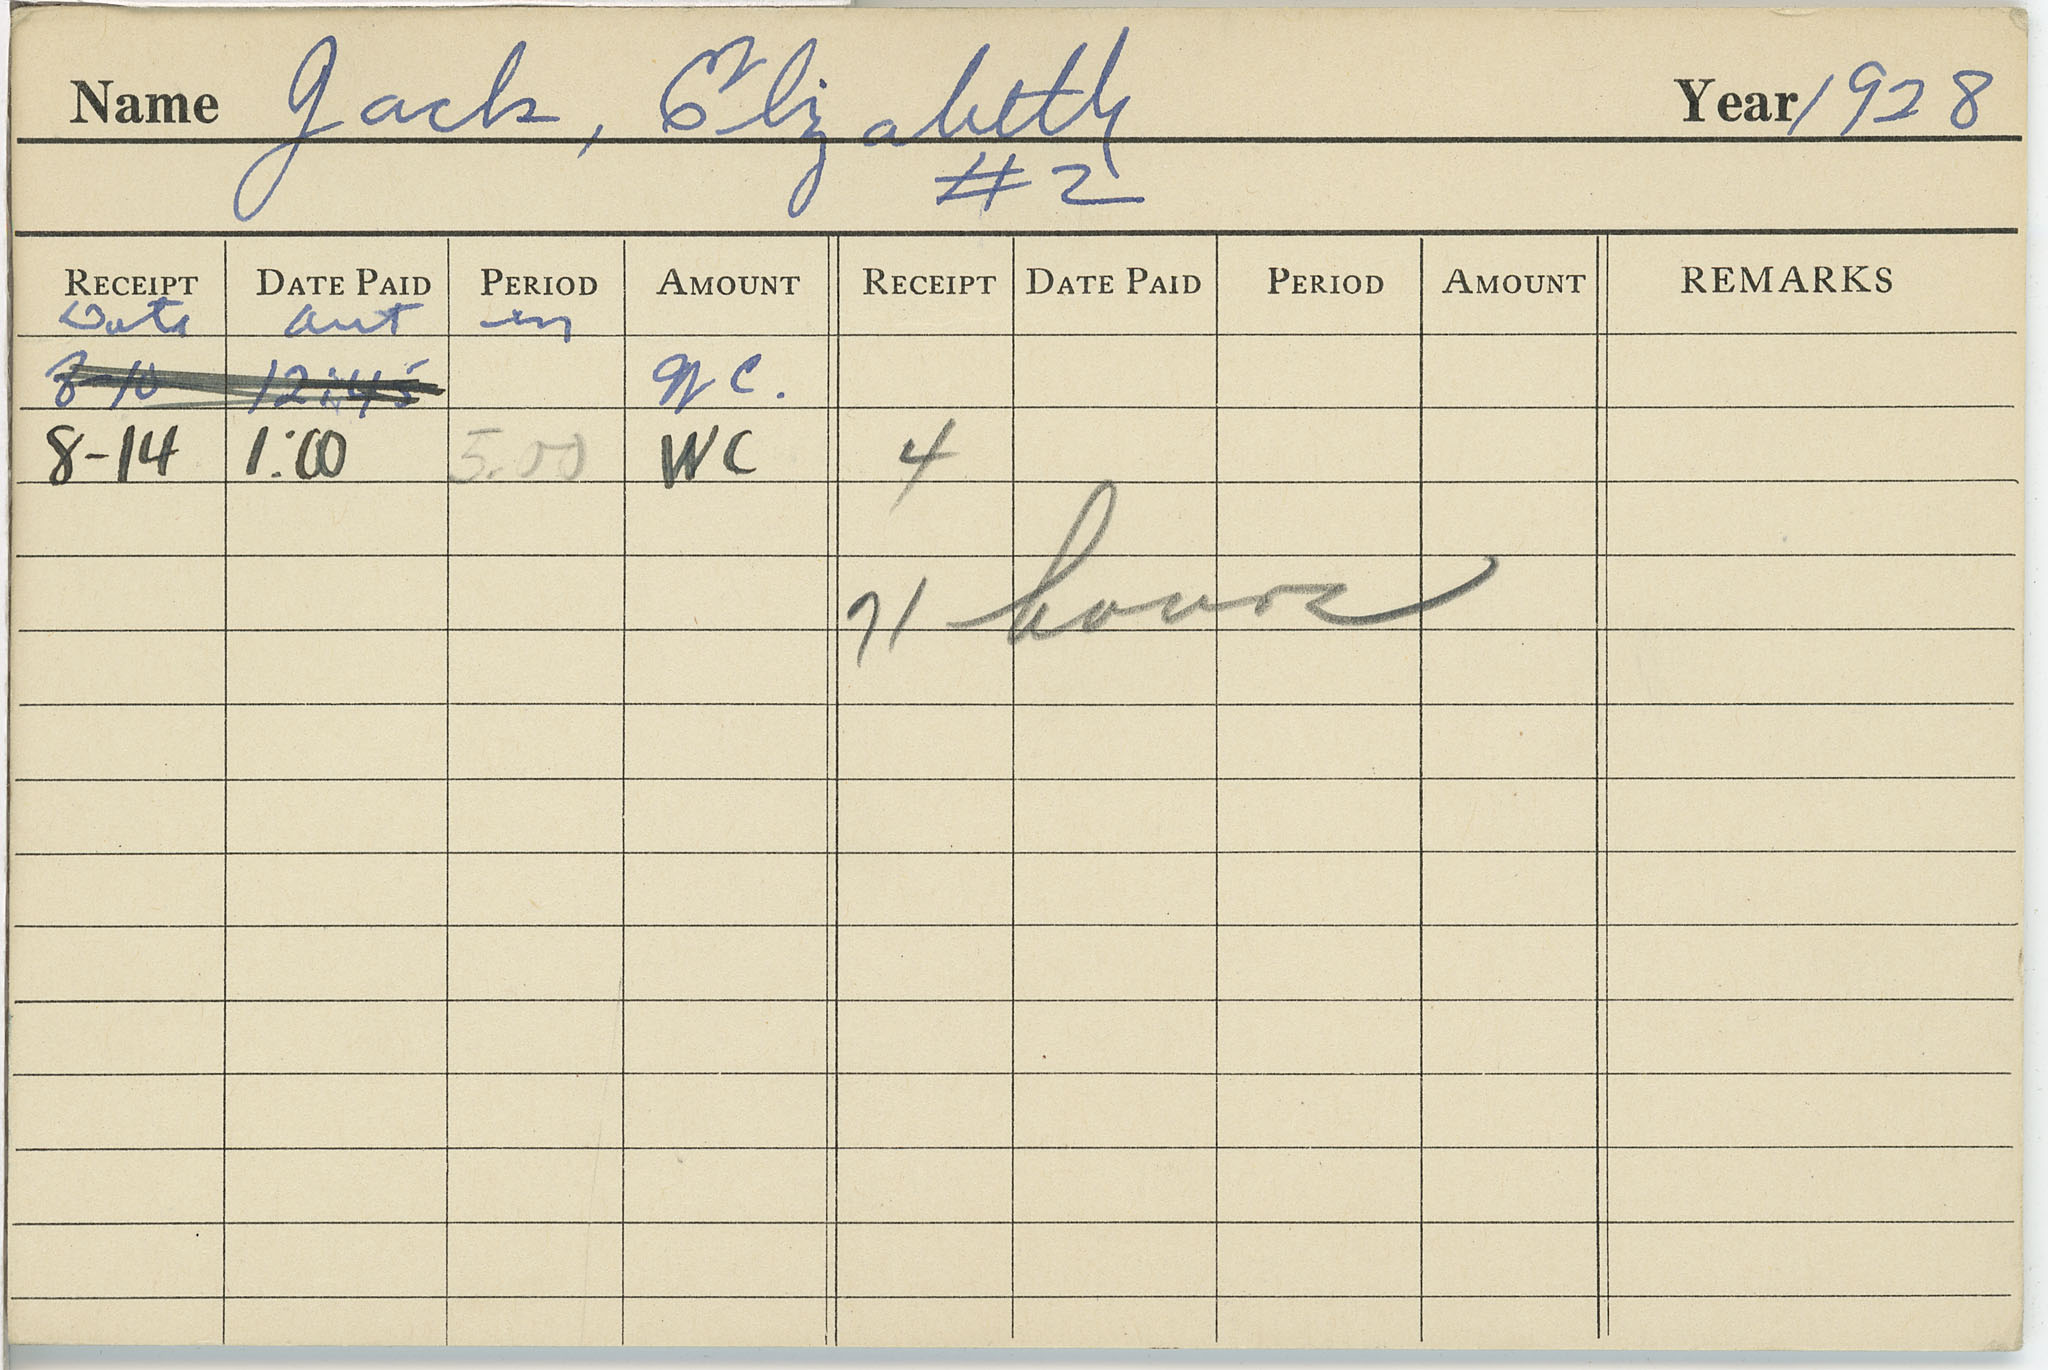 Name Jack, Elizabeth Year 1928
#2
RECEIPT DATE PAID PERIOD AMOUNT RECEIPT DATE PAID PERIOD AMOUNT REMARKS
Date out in
8-10 12:45 WC.
8-14 1:00 5.00 WC 4
71 hours